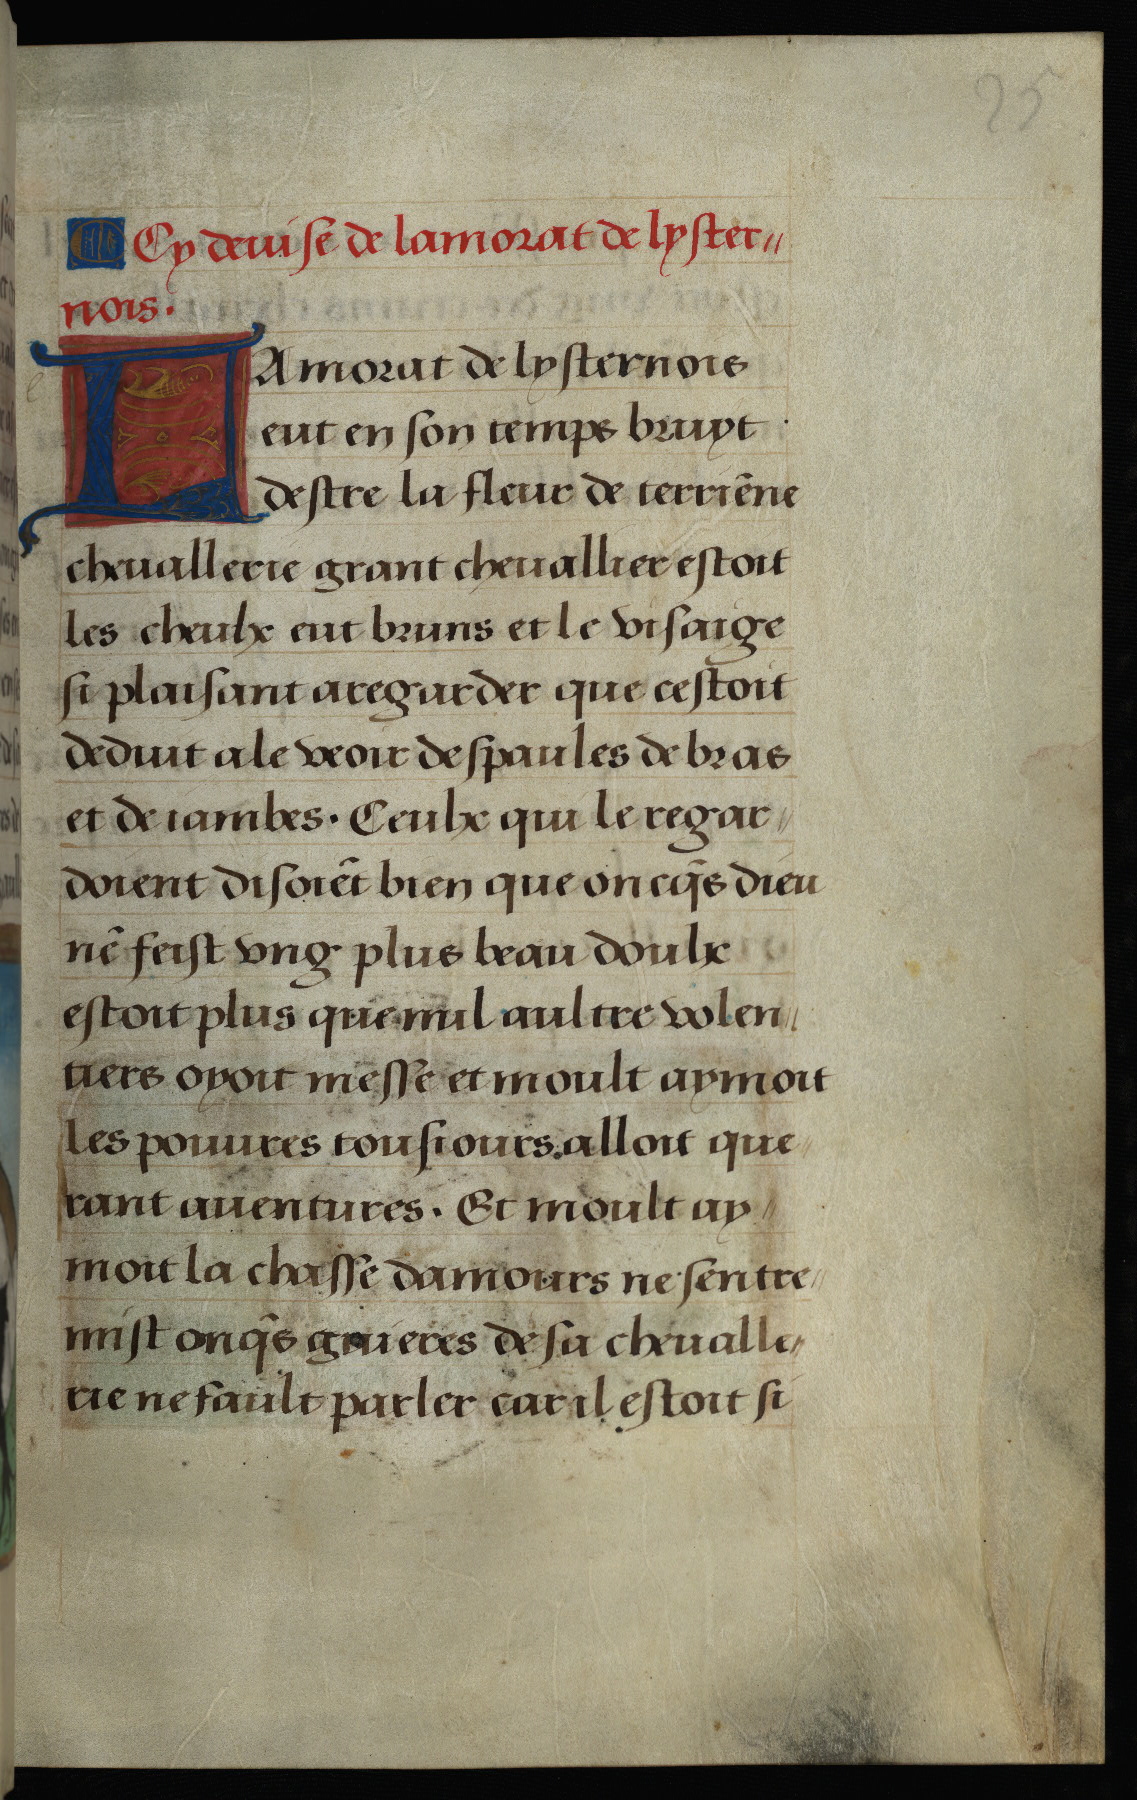 25
Cy deuise de lamorat de lyster〃
nois.
LAmorat de lysternois
eut en son temps bruyt
destre la fleur de terriēne
cheuallerie grant cheuallier estoit
les cheulx eut bruns et le visaige
si plaisant a regarder que cestoit
deduit a le veoir despaules de bras
et de iambes. Ceulx qui le regar〃
doient disoiēt bien que oncq̄s dieu
nē feist vng plus beau doulx
estoit plus que nul aultre volen〃
tiers oyoit messe et moult aymoit
les pouures tousiours alloit que〃
rant auentures. Et moult ay〃
moit la chasse damours ne sentre〃
mist onq̄s gruieres de sa cheualle〃
rie ne fault parler car il estoit si